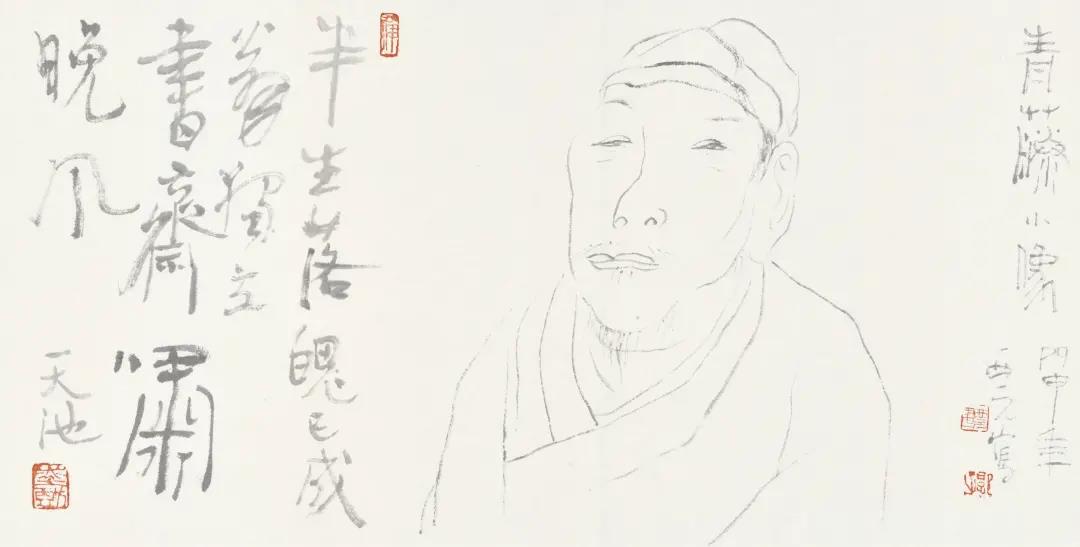 青藤小像
丙申年
寫
半生落魄已成
翁獨立
書齋嘯
晚風
天池